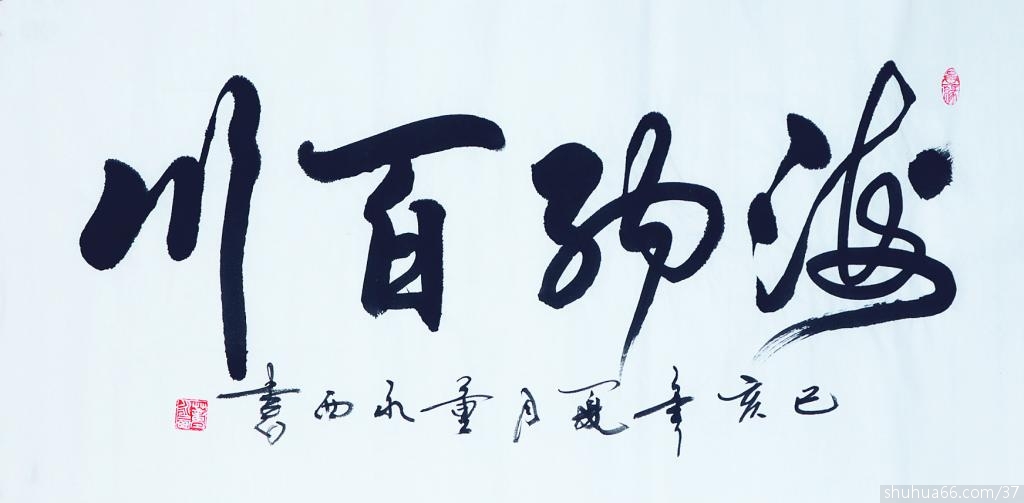 海納百川
己亥年夏月董永西書
shuhua66.com/37